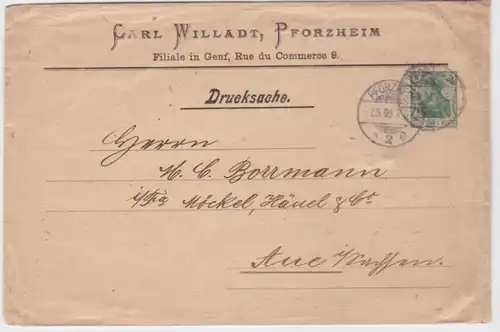 CARL WILLADT, PFORZHEIM
Filiale in Genf, Rue du Commerce 9.
Drucksache.
PFORZ
Herrn
H. C. Borrmann
i/Fa Möckel, Händel & Co
Aue Sachsen.